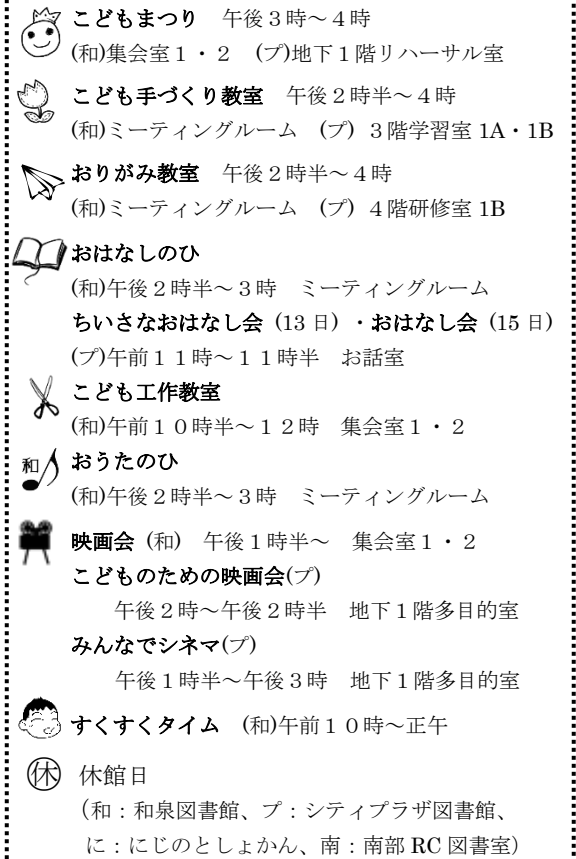 こどもまつり　午後３時～４時
(和)集会室１・２　(プ)地下１階リハーサル室
こども手づくり教室　午後２時半～４時
(和)ミーティングルーム　(プ) ３階学習室 1A・1B
おりがみ教室　午後２時半～４時
(和)ミーティングルーム　(プ) ４階研修室 1B
おはなしのひ
(和)午後２時半～３時　ミーティングルーム
ちいさなおはなし会 (13 日) ・おはなし会 (15 日)
(プ)午前１１時～１１時半　お話室
こども工作教室
(和)午前１０時半～１２時　集会室１・２
和 おうたのひ
(和)午後２時半～３時　ミーティングルーム
映画会 (和)　午後１時半～　集会室１・２
こどものための映画会(プ)
午後２時～午後２時半　地下１階多目的室
みんなでシネマ(プ)
午後１時半～午後３時　地下１階多目的室
すくすくタイム　(和)午前１０時～正午
休 休館日
（和：和泉図書館、プ：シティプラザ図書館、
に：にじのとしょかん、南：南部 RC 図書室）